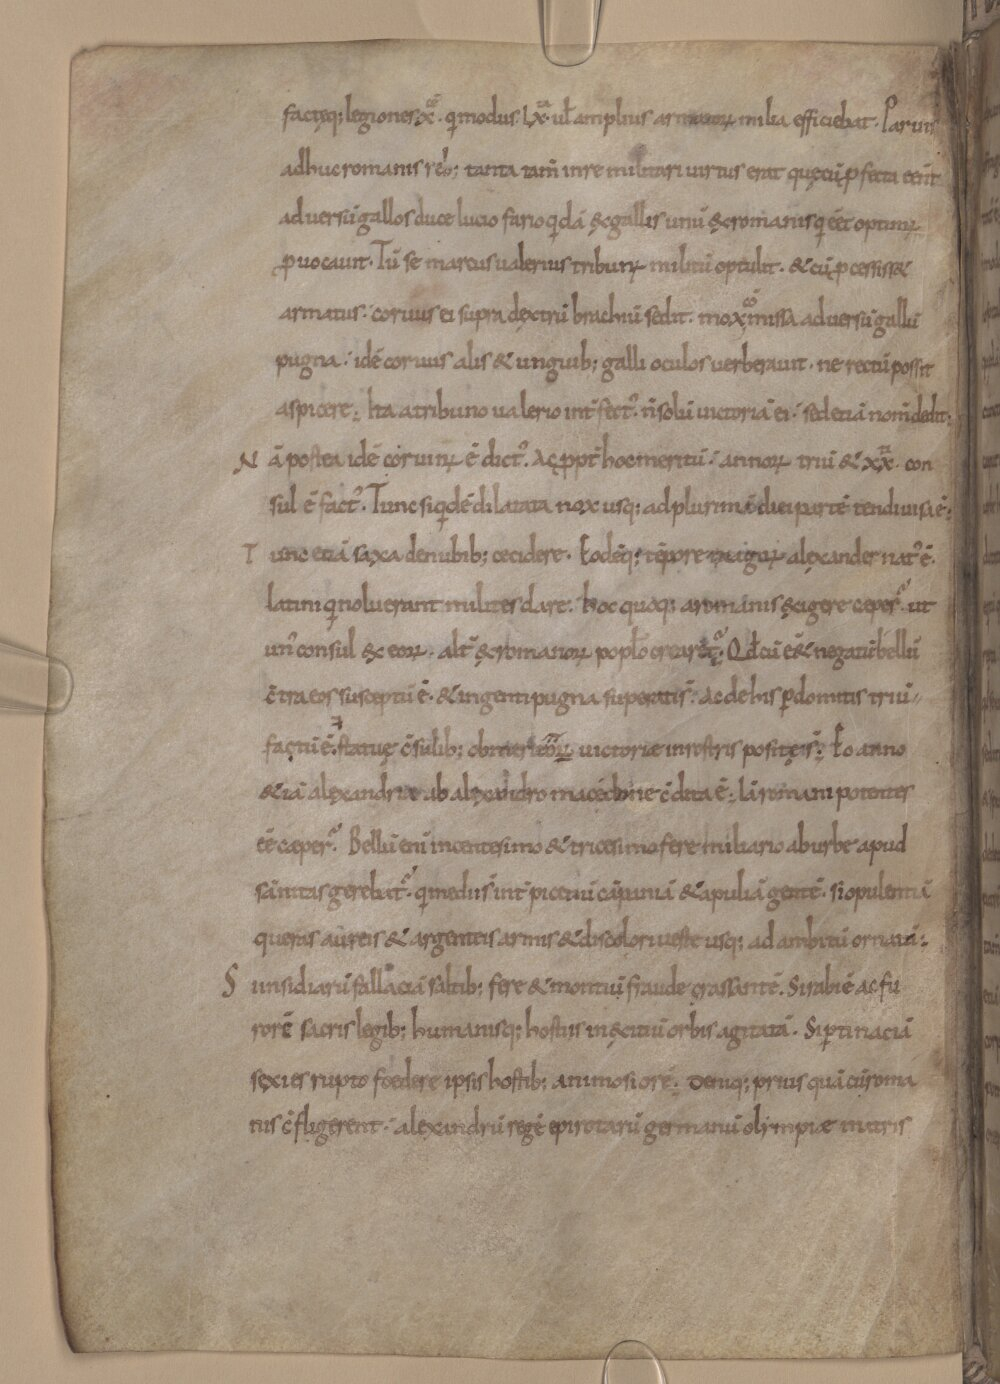 factęq; legiones x̄. qi modus. Lx̄. ul ampluis armatoꝝ milia efficiebat. Paruis
adhuc romanis reb; tanta tam̄ in re militari uirtus erat quę cū ꝓfecta eēnt
aduersū gallos duce lucio furio qidā ex gallis unū ex romanis qi eēt optimꝰ
ꝓuocauit. Tū se marcus ualerius tribunꝰ militū optulit. & cū ꝓcessiss&
armatus. coruus ei supra dextrū brachiū sedit. mox cōmissa aduersū gallū
pugna. idē coruus alis & unguib; galli oculos uerberauit. ne rectū possit
aspicere. Ita a tribuno ualerio int̄fectꝰ. n̄ solū uictoriā ei. sed etiā nom̄ dedit.
Nā postea idē coruinꝰ ē dictꝰ. Ac ꝓpt̄ hoc meritū. annoꝝ triū & xx. con
sul ē factꝰ. Tunc siqidē dilatata nox usq; ad plurimā diei partē tendi uisa ē.
Tunc etiā saxa de nubib; cecidere. Eodēq; tēpore magnꝰ alexander natꝰ ē.
latini qi noluerant milites dare. hoc quoq; a romanis exigere ceper̄. ut
unꝰ consul ex eoꝝ. alt̄ ex romanoꝝ poplo crearet̄. Qd cū ēet negatū bellū
c̄tra eos susceptū ē. & ingenti pugna superati s̄. Ac de his ꝑdomitis triū
factū ē. statuę c̄sulib; ob meritū uictoriae in rostris positę s̄. Eo anno
& iā alexandria ab alexandro macedone c̄dita ē. Iā romani potentes
eē ceper̄. Bellū eni in centesimo & tricesimo fere miliario ab urbe apud
sānitas gerebat̄. qi medii s̄ int̄ picenū cāpaniā & apuliā gentē. si opulentiā
queras aureis & argenteis armis & discolori ueste usq; ad ambitū ornatā.
S insidiarū fallaciā saltib; fere & montiū fraude grassantē. Si rabiē ac fu
rorē sacris legib; humanisq; hostiis in exitiū orbis agitatā. Si ꝑtinaciā
sexies rupto foedere ipsis hostib; animosiorē. Deniq; prius quā cū roma
nis c̄fligerent. alexandrū regē epirotarū germanū olimpiae matris